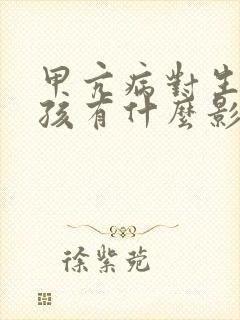 甲亢病對生
孩有什麼影
徐紫苑